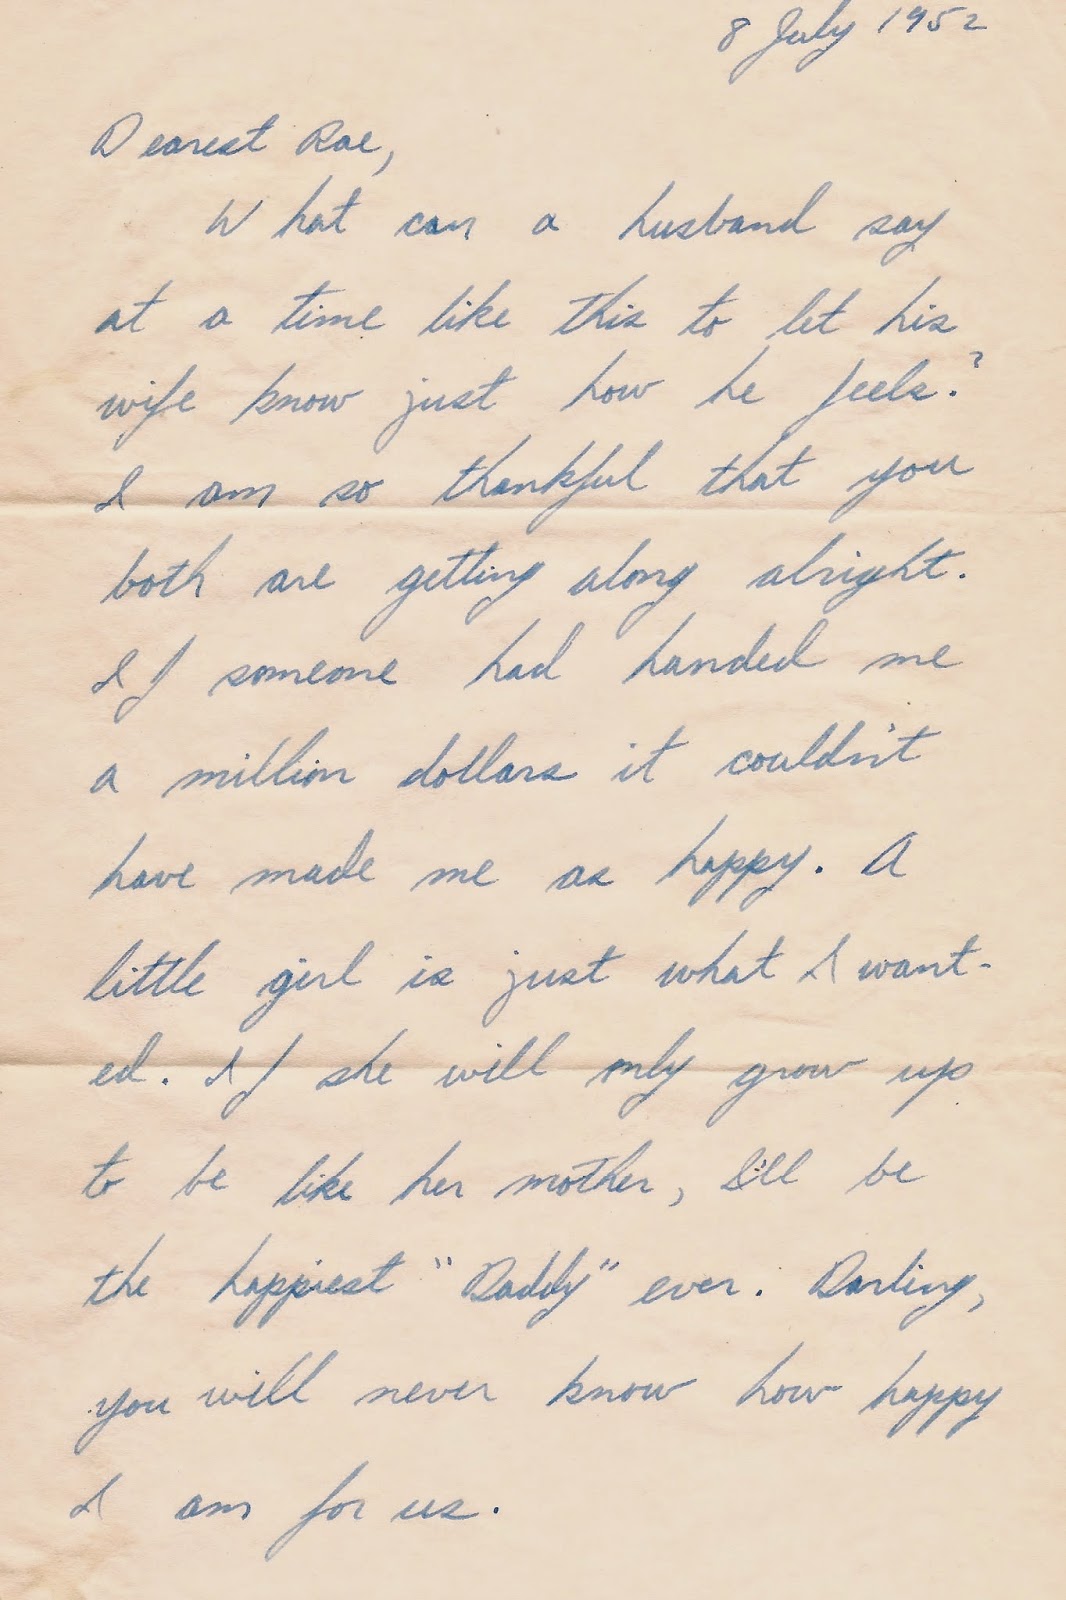 8 July 1952
Dearest Rae,
What can a husband say
at a time like this to let his
wife know just how he feels?
I am so thankful that you
both are getting along alright.
If someone had handed me
a million dollars it couldn't
have made me as happy. A
little girl is just what I want-
ed. If she will only grow up
to be like her mother, I'll be
the happiest "Daddy" ever. Darling,
you will never know how happy
I am for us.